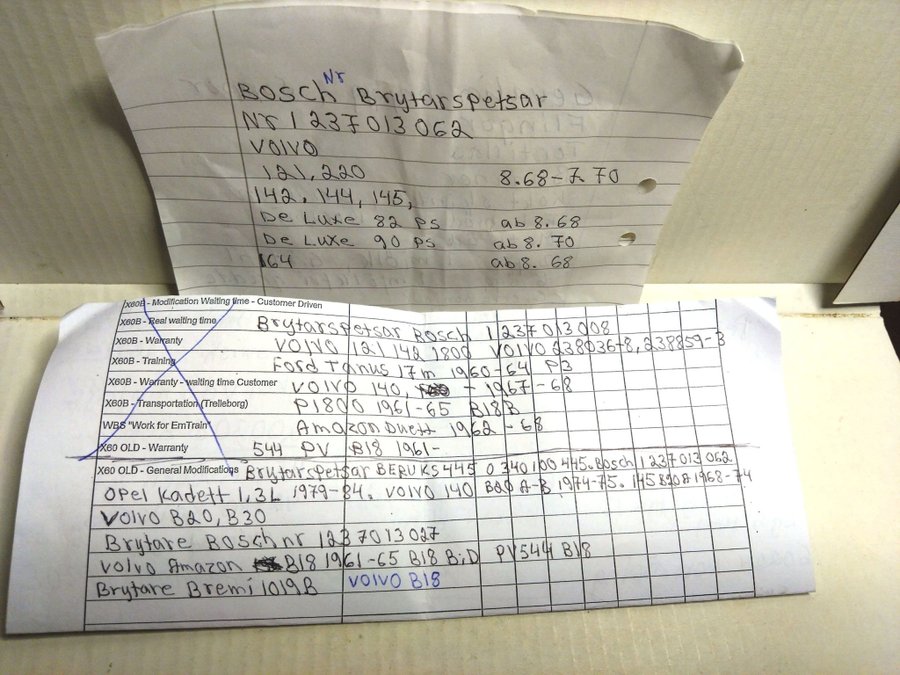 Nr
BOSCH Brytarspetsar
Nr 1 237 013 062
VOLVO
121, 220 8.68-7.70
142, 144, 145,
De Luxe 82 PS ab 8. 68
De Luxe 90 PS ab 8. 70
164 ab 8. 68
X60B - Modification Waiting time - Customer Driven
X60B - Real waiting time Brytarspetsar Bosch 1 237 013 008
X60B - Warranty VOLVO 121 142 1800 VOLVO 238036-8, 238859-3
X60B - Training Ford Tanus 17m 1960-64 P3
X60B - Warranty - waiting time Customer VOLVO 140, - 1967-68
X60B - Transportation (Trelleborg) P1800 1961-65 B18B
WBS "Work for EmTrain" Amazon Duett 1962-68
X60 OLD - Warranty 544 PV B18 1961-
X60 OLD - General Modifications Brytarspetsar BERU KS445 0 340 100 445. Bosch 1 237 013 062
Opel Kadett 1,3L 1979-84. VOLVO 140 B20 A-B 1974-75. 145 B20A 1968-74
VOLVO B20, B30
Brytare Bosch nr 1237013027
Volvo Amazon B18 1961-65 B18 B,D PV544 B18
Brytare Bremi 1019B VOLVO B18